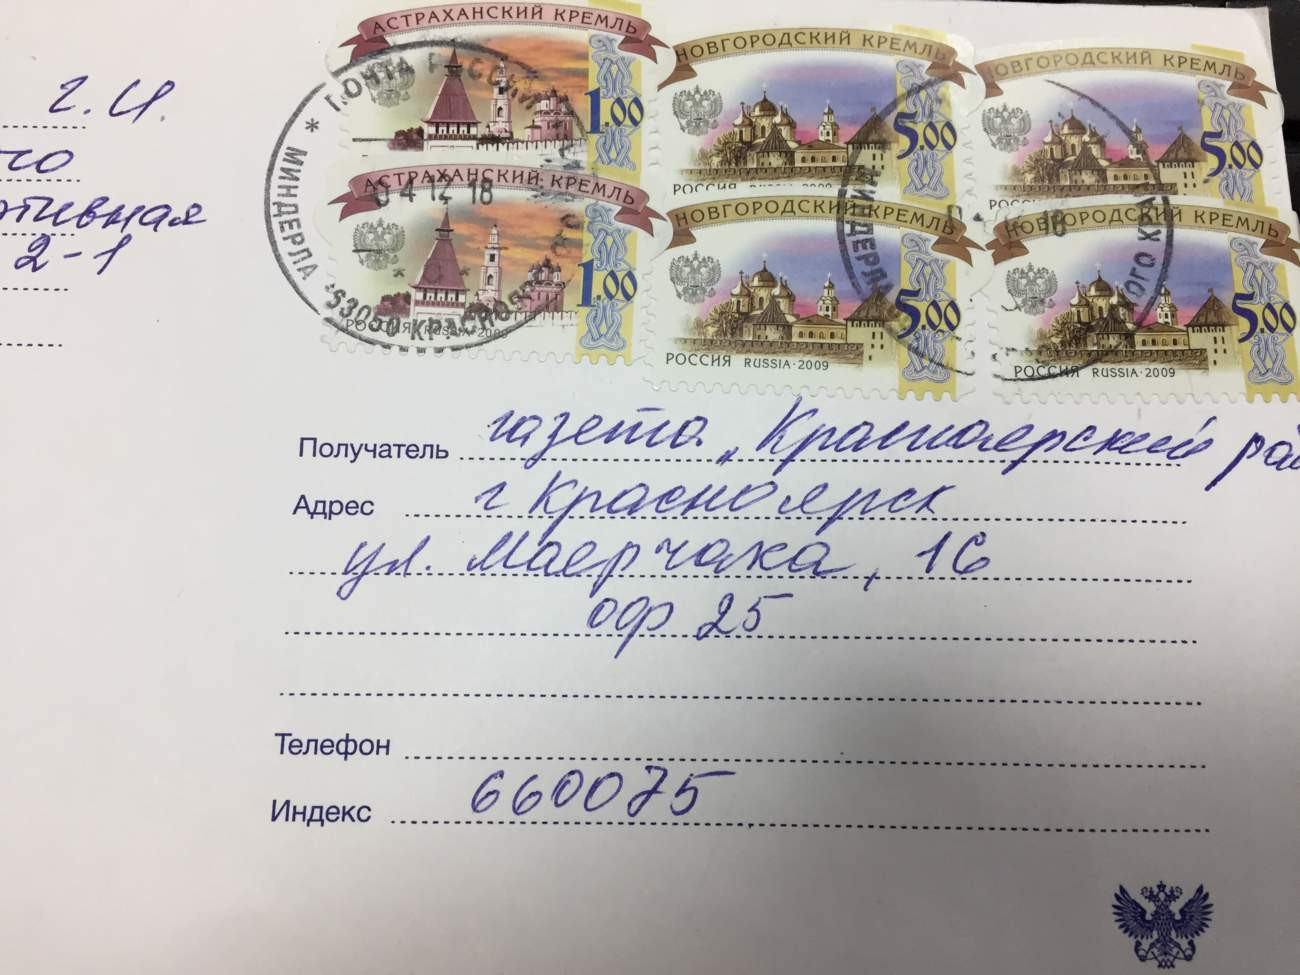 АСТРАХАНСКИЙ КРЕМЛЬ
1.00
НОВГОРОДСКИЙ КРЕМЛЬ
5.00
РОССИЯ RUSSIA·2009
НОВГОРОДСКИЙ КРЕМЛЬ
5.00
АСТРАХАНСКИЙ КРЕМЛЬ
1.00
РОССИЯ RUSSIA·2009
НОВГОРОДСКИЙ КРЕМЛЬ
5.00
РОССИЯ RUSSIA·2009
НОВГОРОДСКИЙ КРЕМЛЬ
5.00
РОССИЯ RUSSIA·2009
ПОЧТА РОССИИ
* МИНДЕРЛА
04 12 18
МИНДЕРЛА
г. И.
2-1
Получатель газета "Красноярский
Адрес г Красноярск
ул. Маерчака, 16
оф 25
Телефон
Индекс 660075